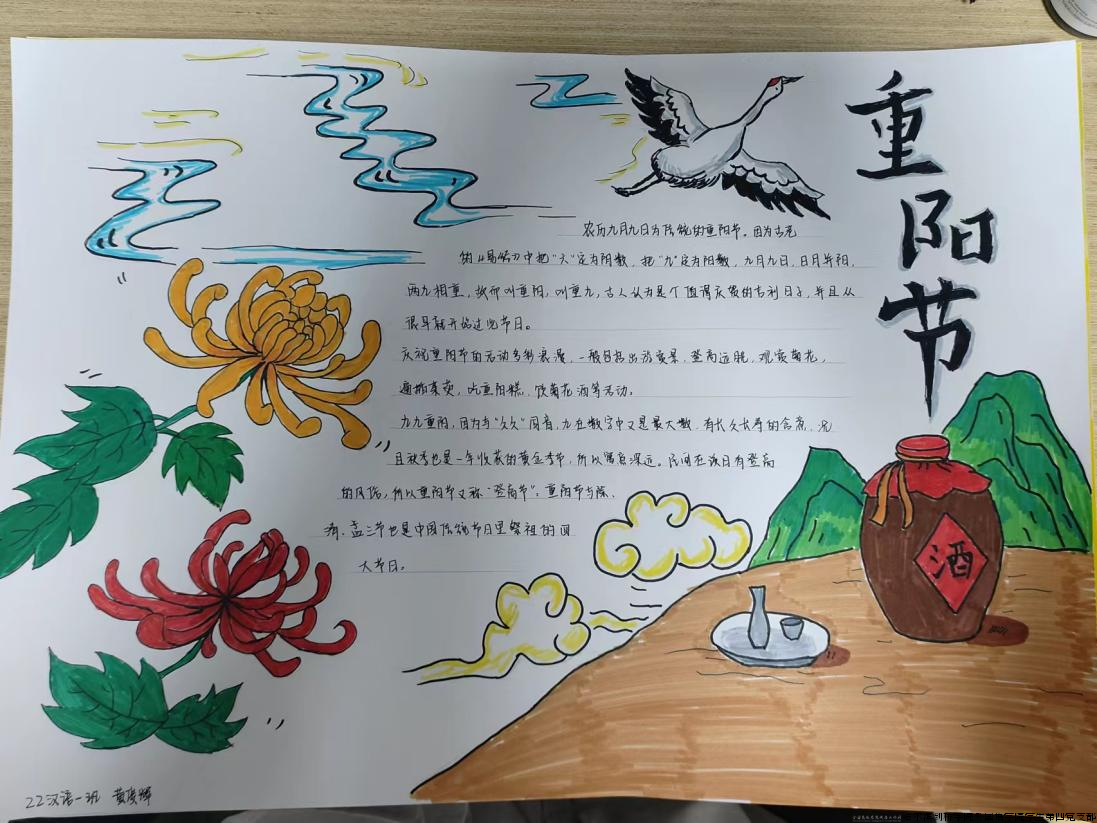 重阳节
农历九月九日为传统的重阳节。因为古老
的《易经》中把"六"定为阴数，把"九"定为阳数，九月九日，日月并阳，
两九相重，故而叫重阳，叫重九，古人认为是个值得庆贺的吉利日子，并且从
很早就开始过此节日。
庆祝重阳节的活动多彩浪漫，一般包括出游赏景、登高远眺、观赏菊花、
遍插茱萸、吃重阳糕、饮菊花酒等活动。
九九重阳，因为与"久久"同音，九在数字中又是最大数，有长久长寿的含意，况
且秋季也是一年收获的黄金季节，所以寓意深远，民间在该日有登高
的风俗，所以重阳节又称"登高节"。重阳节与除、
清、盂三节也是中国传统节日里祭祖的四
大节日。
酒
22汉语一班 黄
第四党支部